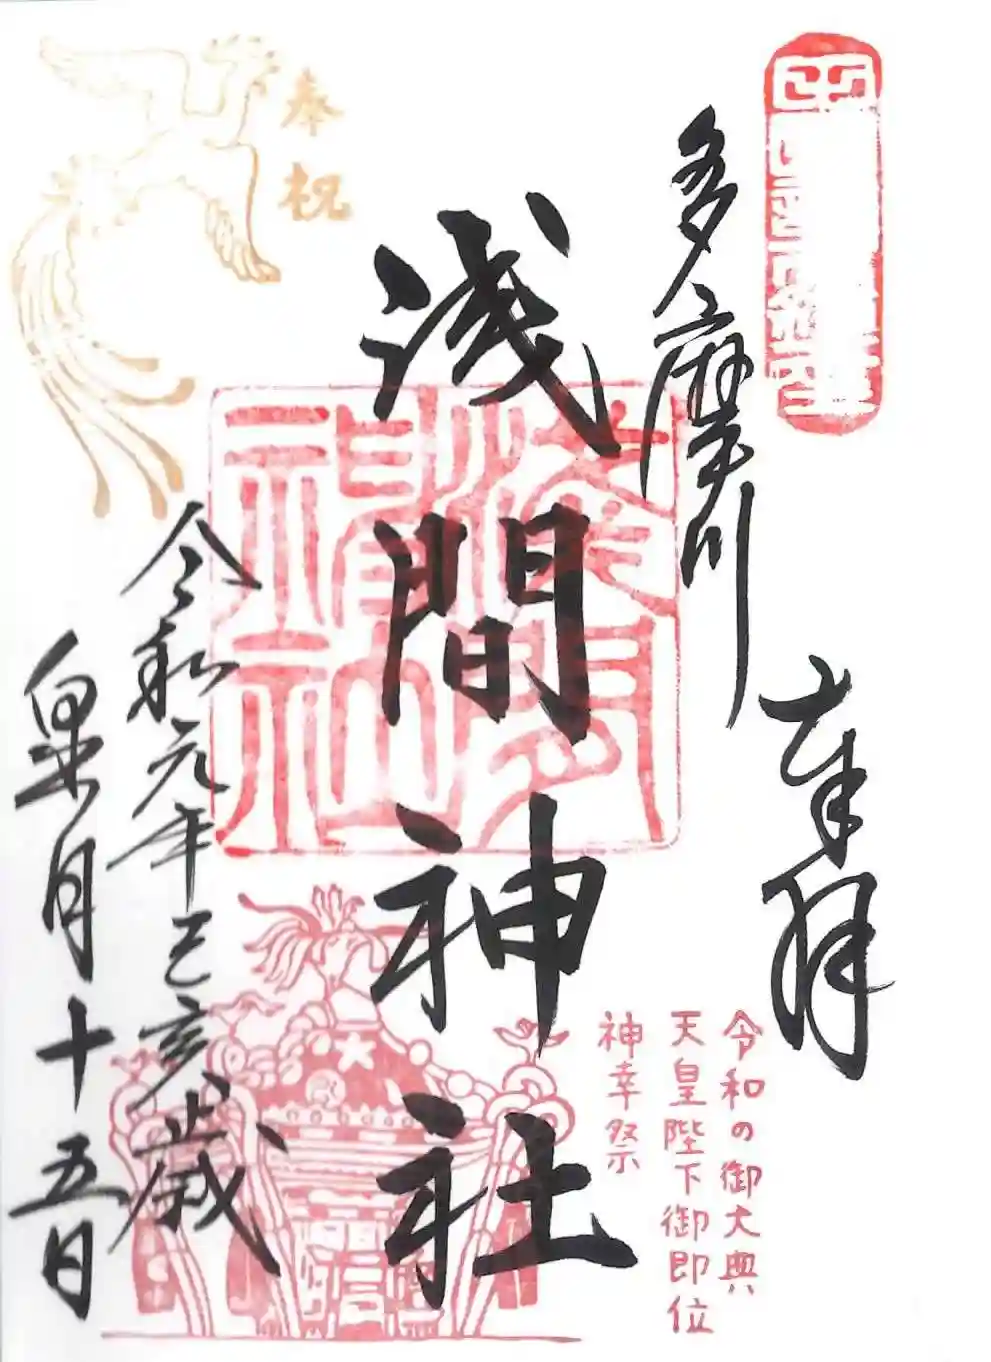 奉拝
多摩川
浅間神社
令和の御大典
天皇陛下御即位
神幸祭
奉祝
浅間神社
令和元年己亥歳
皐月十五日